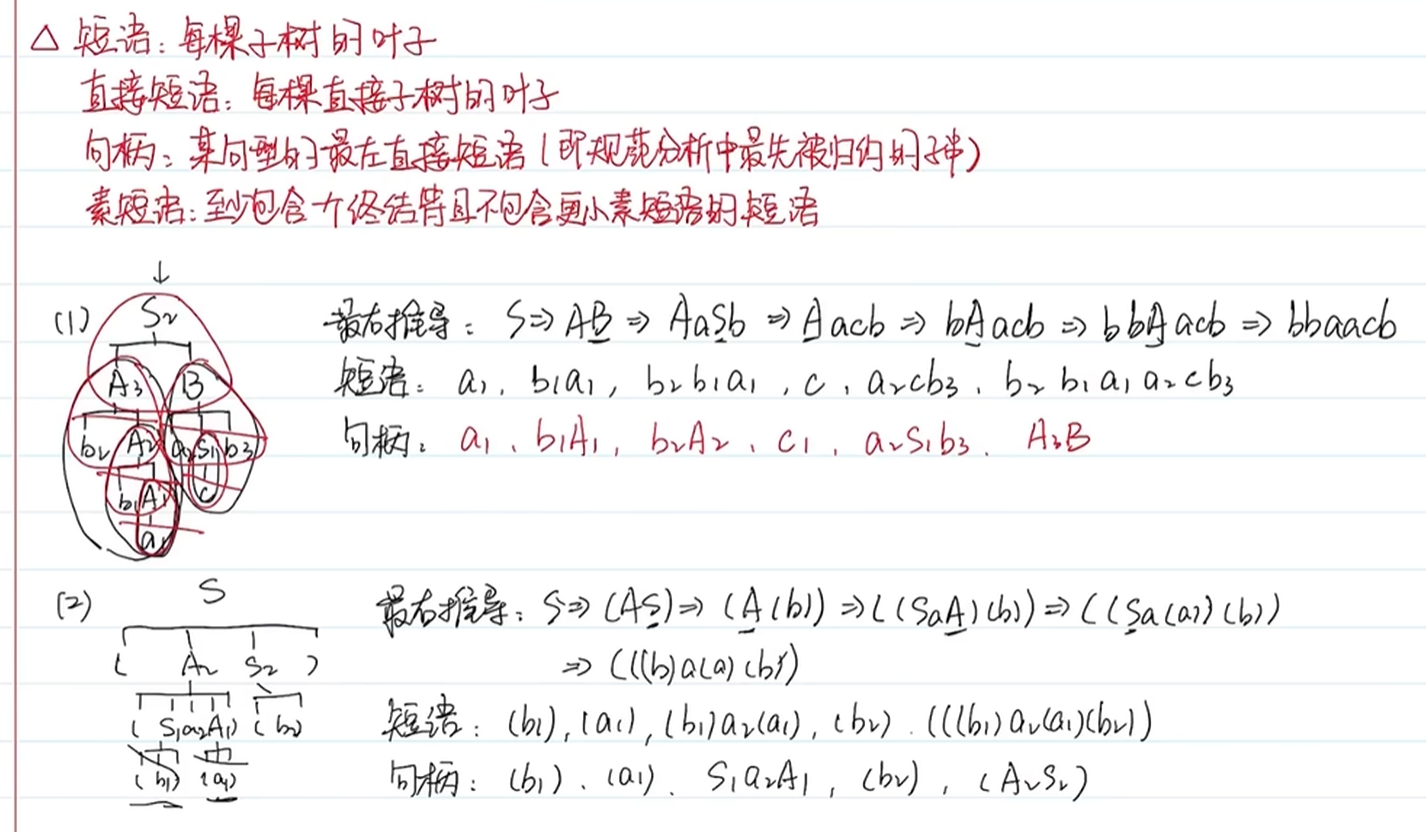 △ 短语：每棵子树的叶子
直接短语：每棵直接子树的叶子
句柄：某句型的最左直接短语（即规范分析中最先被归约的子串）
素短语：至少包含一个终结符且不包含更小素短语的短语
↓
(1) S₂
A₃ B
b₂ A₂ a₂ S₁ b₃
b₁ A₁ c
a₁
最右推导：S⇒AB⇒AaSb⇒Aacb⇒bAacb⇒bbAacb⇒bbaacb
短语：a₁、b₁a₁，b₂b₁a₁，c、a₂cb₃、b₂b₁a₁a₂cb₃
句柄：a₁、b₁A₁，b₂A₂、c₁、a₂S₁b₃、A₃B
(2) S
( A₂ S₂ )
( S₁ a₂ A₁ ) ( b₂ )
( b₁ ) ( a₁ )
最右推导：S⇒(AS)⇒(A(b))⇒((SaA)(b))⇒((Sa(a))(b))
⇒(((b)a(a)(b))
短语：(b₁),(a₁),(b₁)a₂(a₁),(b₂).(((b₁)a₂(a₁)(b₂))
句柄：(b₁)、(a₁)、S₁a₂A₁，(b₂)，(A₂S₂)